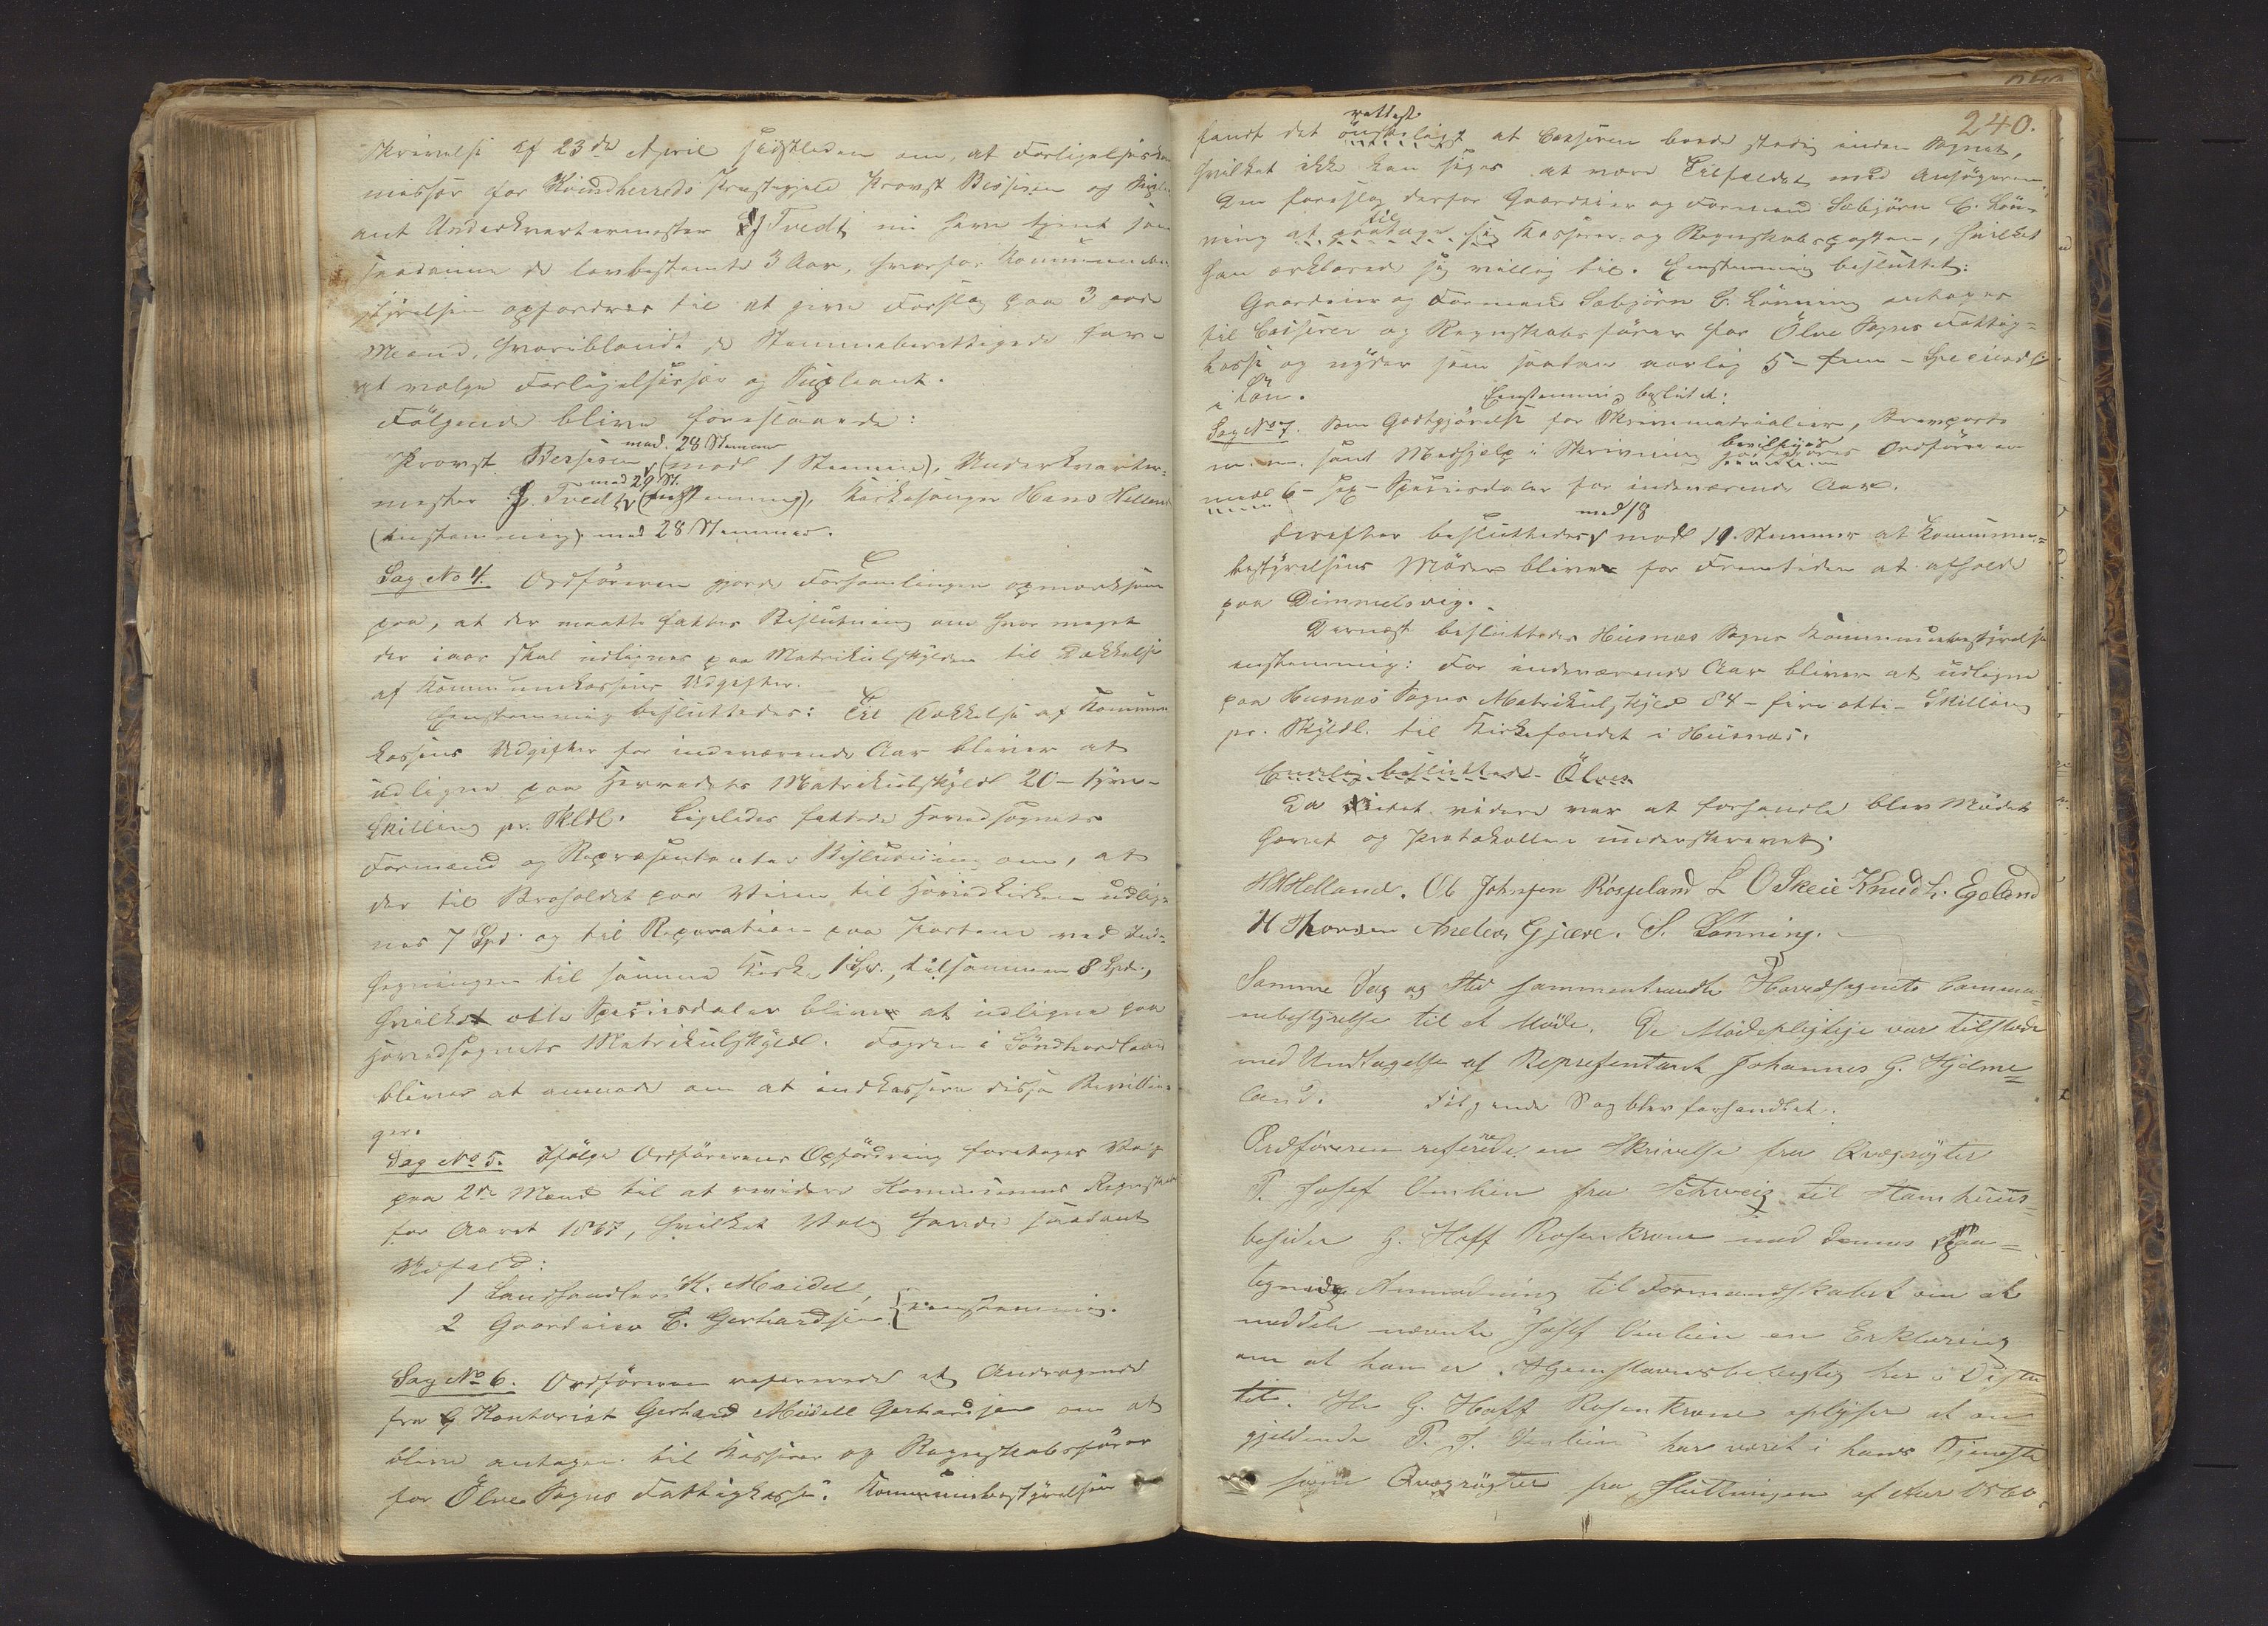 Skrivelse af 23de April sidstleden om, at Forligelseskom
missær for Kvindherreds Præstegjeld Provst Bessesen og Suple
ant Underkvartermester J Tvedt nu have tjent som
saadanne de lovbestemte 3 Aar, hvorfor Kommunebe
styrelsen opfordres til at give Forslag paa 3 gode
Mænd, hvoriblandt de Stemmeberettigede have
at vælge Forligelsessær og Supleant.
Følgende bliver foreslaaede:
med 28 Stemmer
Provst Bessesen (mod 1 Stemme), Underkvarter-
med 29 St.
mester J. Tvedt (enstemmig), Kirkesanger Hans Helland
(enstemmig) med 28 Stemmer.
Sag No 4. Ordføreren gjorde Forsamlingen opmærksom
paa, at der maatte fattes Beslutning om hvor meget
der iaar skal udlignes paa Matrikulskylden til Dækkelse
af Kommunekassens Udgifter.
Eenstemmig besluttedes: Til Dækkelse af Kommune
kassens Udgifter for indeværende Aar bliver at
udligne paa Herredets Matrikulskyld 20 - tyve -
Skilling pr. Skldl. Ligeledes fattede Hovedsognets
Formænd og Repræsentanter Beslutning om, at
der til Broholdet paa Veien til Hovedkirken udlig-
nes 7 Spd. og til Reparation paa Portene ved Ind-
hegningen til samme Kirke 1 Sp., tilsammen 8 Spd.,
hvilket otte Speciesdaler bliver at udligne paa
Hovedsognets Matrikulskyld. Fogden i Søndhordland
bliver at anmode om at indkassere disse Bevillin-
ger.
Sag No 5. Ifølge Ordførerens Opfordring foretoges Valg
paa 2de Mænd til at revidere Kommunens Regnskab
for Aaret 1867, hvilket Valg havde saadant
Udfald:
1 Landhandler K. Meidell,
2 Gaardeier C. Gerhardsen } eenstemmig.
Sag No 6. Ordføreren refererede et Andragende
fra Kontorist Gerhard Meidell Gerhardsen om at
blive antagen til Kasserer og Regnskabsfører
for Ølve Sogns Fattigkasse. Kommunebestyrelsen
240.
rettest
fandt det ønskeligt at Casseren boede stadig inden Sognet,
hvilket ikke kan siges at være Tilfældet med Ansøgeren.
Den foreslog derfor Gaardeier og Formand Sæbjørn C. Løn-
til
ning at paatage sig Kasserer- og Regnskabsposten, hvilket
han erklærede sig villig til. Eenstemmig besluttet:
Gaardeier og Formand Sæbjørn C. Lønning antages
til Casserer og Regnskabsfører for Ølve Sogns Fattig-
kasse og nyder som saadan aarlig 5 - fem - Speciedl
i Løn. Eenstemmig besluttet:
Sag No 7. Som Godtgjørelse for Skrivematrialier, Brevporto
bevilges
m. m. samt Medhjelp i Skrivning godtgjøres Ordføreren
med 6 - sex - Speciesdaler for indeværende Aar.
med 18
Derefter besluttedes mod 11. Stemmer at Kommune-
bestyrelsens Møder bliver for Fremtiden at afholde
paa Dimmelsvig.
Dernæst besluttedes Husnæs Sogns Kommunebestyrelse
enstemmig: For indeværende Aar bliver at udligne
paa Husnæs Sogns Matrikulskyld 84 - fire otti - Skilling
pr. Skyldl. til Kirkefondet i Husnæs.
Endelig besluttede Ølves
Da Intet videre var at forhandle blev Mødet
hævet og Protokollen underskrevet.
H Helland. Ol. Johnsen Røsseland L O Skeie Knud L. Egeland
H Thorsen Anders Gjære. S. Lønning.
Samme Dag og Sted sammentraadte Hovedsognets Commu-
nebestyrelse til et Møde. De Mødepligtige var tilstede
med Undtagelse af Repræsentant Johannes G. Hjelme-
land. Følgende Sag blev forhandlet.
Ordføreren refererede en Skrivelse fra Qvægrøgter
P. Josef Omlien fra Schweiz til Stamhuus-
besidder G. Hoff Rosenkrone med dennes Paa-
tegnede Anmodning til Formandskabet om at
meddele nævnte Josef Omlien en Erklæring
om at han er Hjemstavnsberettiget her i Distri
tit. Hr G. Hoff Rosenkrone oplyser at an
gjeldende P. J. Omlien har været i hans Tjeneste
som Qvægrøgter fra Slutningen af Aar 1860